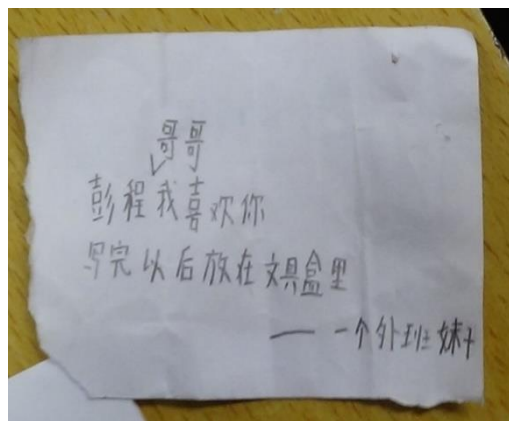 哥哥
彭程我喜欢你
写完以后放在文具盒里
——一个外班妹子